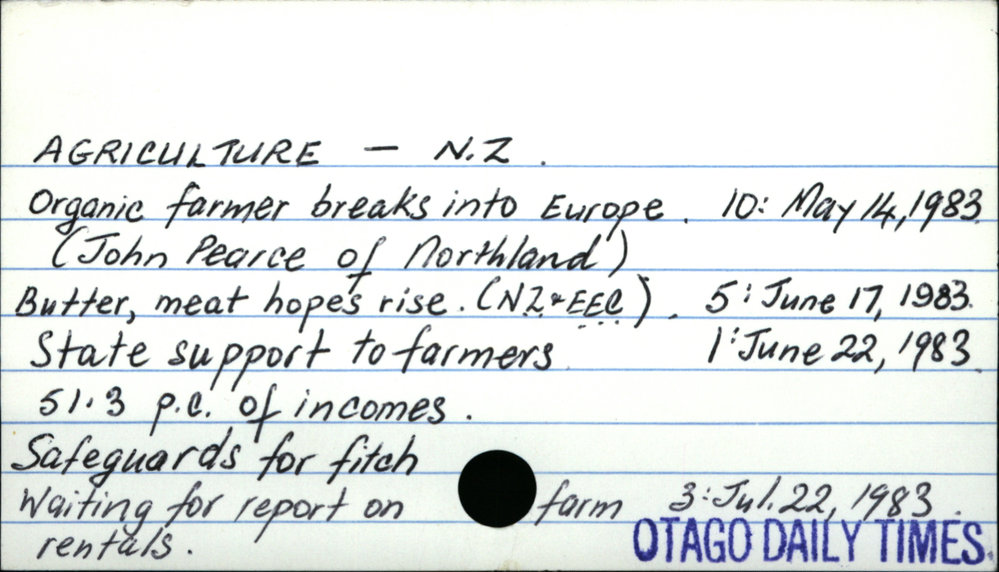 AGRICULTURE — N.Z.
Organic farmer breaks into Europe. 10: May 14, 1983.
(John Pearce of Northland)
Butter, meat hopes rise. (NZ & E.E.C.). 5: June 17, 1983.
State support to farmers 1: June 22, 1983.
51.3 p.c. of incomes.
Safeguards for fitch
Waiting for report on farm 3: Jul. 22, 1983.
rentals.
OTAGO DAILY TIMES.